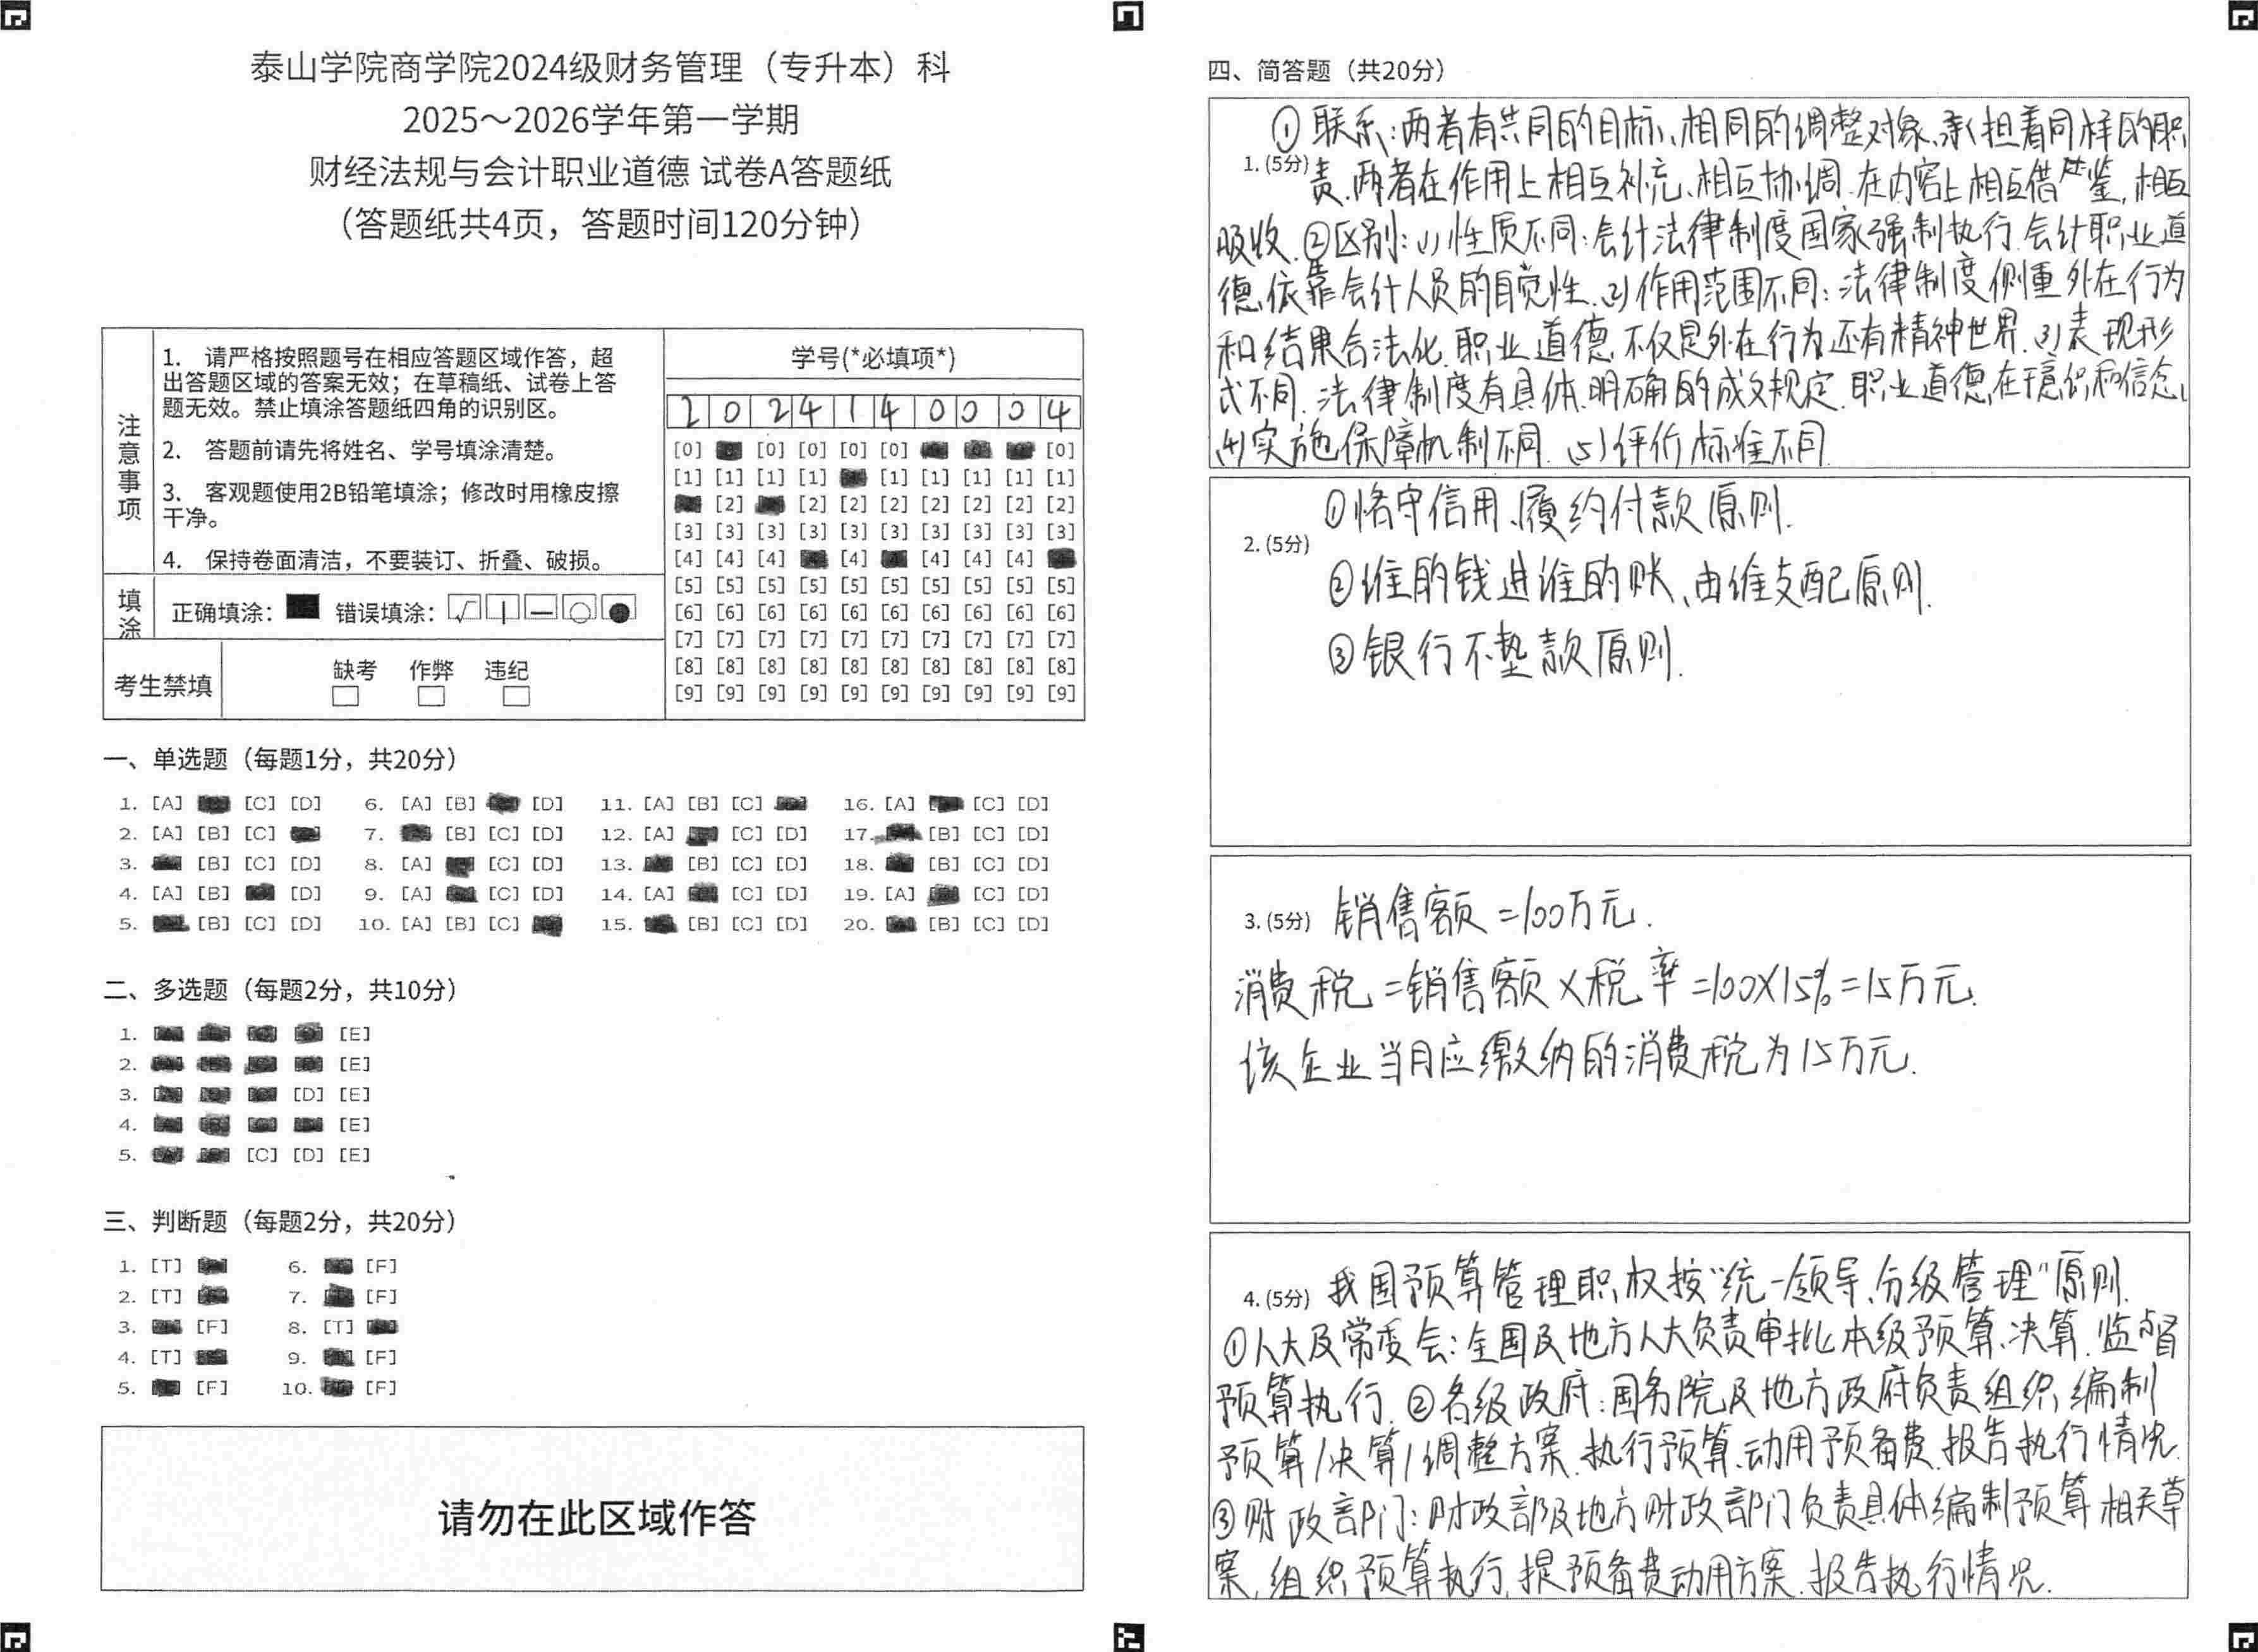 泰山学院商学院2024级财务管理（专升本）科
2025～2026学年第一学期
财经法规与会计职业道德 试卷A答题纸
（答题纸共4页，答题时间120分钟）
注意事项
1. 请严格按照题号在相应答题区域作答，超
出答题区域的答案无效；在草稿纸、试卷上答
题无效。禁止填涂答题纸四角的识别区。
2. 答题前请先将姓名、学号填涂清楚。
3. 客观题使用2B铅笔填涂；修改时用橡皮擦
干净。
4. 保持卷面清洁，不要装订、折叠、破损。
填涂
正确填涂： 错误填涂：
考生禁填
缺考 作弊 违纪
学号(*必填项*)
2 0 2 4 1 4 0 0 0 4
[0] [0] [0] [0] [0] [0]
[1] [1] [1] [1] [1] [1] [1] [1] [1]
[2] [2] [2] [2] [2] [2] [2] [2]
[3] [3] [3] [3] [3] [3] [3] [3] [3] [3]
[4] [4] [4] [4] [4] [4] [4]
[5] [5] [5] [5] [5] [5] [5] [5] [5] [5]
[6] [6] [6] [6] [6] [6] [6] [6] [6] [6]
[7] [7] [7] [7] [7] [7] [7] [7] [7] [7]
[8] [8] [8] [8] [8] [8] [8] [8] [8] [8]
[9] [9] [9] [9] [9] [9] [9] [9] [9] [9]
一、单选题（每题1分，共20分）
1. [A] [C] [D] 6. [A] [B] [D] 11. [A] [B] [C] 16. [A] [C] [D]
2. [A] [B] [C] 7. [B] [C] [D] 12. [A] [C] [D] 17. [B] [C] [D]
3. [B] [C] [D] 8. [A] [C] [D] 13. [B] [C] [D] 18. [B] [C] [D]
4. [A] [B] [D] 9. [A] [C] [D] 14. [A] [C] [D] 19. [A] [C] [D]
5. [B] [C] [D] 10. [A] [B] [C] 15. [B] [C] [D] 20. [B] [C] [D]
二、多选题（每题2分，共10分）
1. [E]
2. [E]
3. [D] [E]
4. [E]
5. [C] [D] [E]
三、判断题（每题2分，共20分）
1. [T] 6. [F]
2. [T] 7. [F]
3. [F] 8. [T]
4. [T] 9. [F]
5. [F] 10. [F]
请勿在此区域作答
四、简答题（共20分）
①联系：两者有共同的目标、相同的调整对象、承担着同样的职
1. (5分) 责.两者在作用上相互补充、相互协调.在内容上相互借鉴,相互
吸收.②区别：(1)性质不同：会计法律制度国家强制执行.会计职业道
德依靠会计人员的自觉性.(2)作用范围不同：法律制度侧重外在行为
和结果合法化.职业道德不仅是外在行为还有精神世界.(3)表现形
式不同.法律制度有具体.明确的成文规定.职业道德在于意识和信念
(4)实施保障机制不同.(5)评价标准不同.
①恪守信用、履约付款原则.
2. (5分)
②谁的钱进谁的账、由谁支配原则.
③银行不垫款原则.
3. (5分) 销售额=100万元.
消费税=销售额×税率=100×15%=15万元.
该企业当月应缴纳的消费税为15万元.
4. (5分) 我国预算管理职权按“统一领导、分级管理”原则.
①人大及常委会：全国及地方人大负责审批本级预算、决算.监督
预算执行.②各级政府：国务院及地方政府负责组织编制
预算/决算/调整方案.执行预算.动用预备费.报告执行情况.
③财政部门：财政部及地方财政部门负责具体编制预算相关草
案,组织预算执行,提预备费动用方案.报告执行情况.